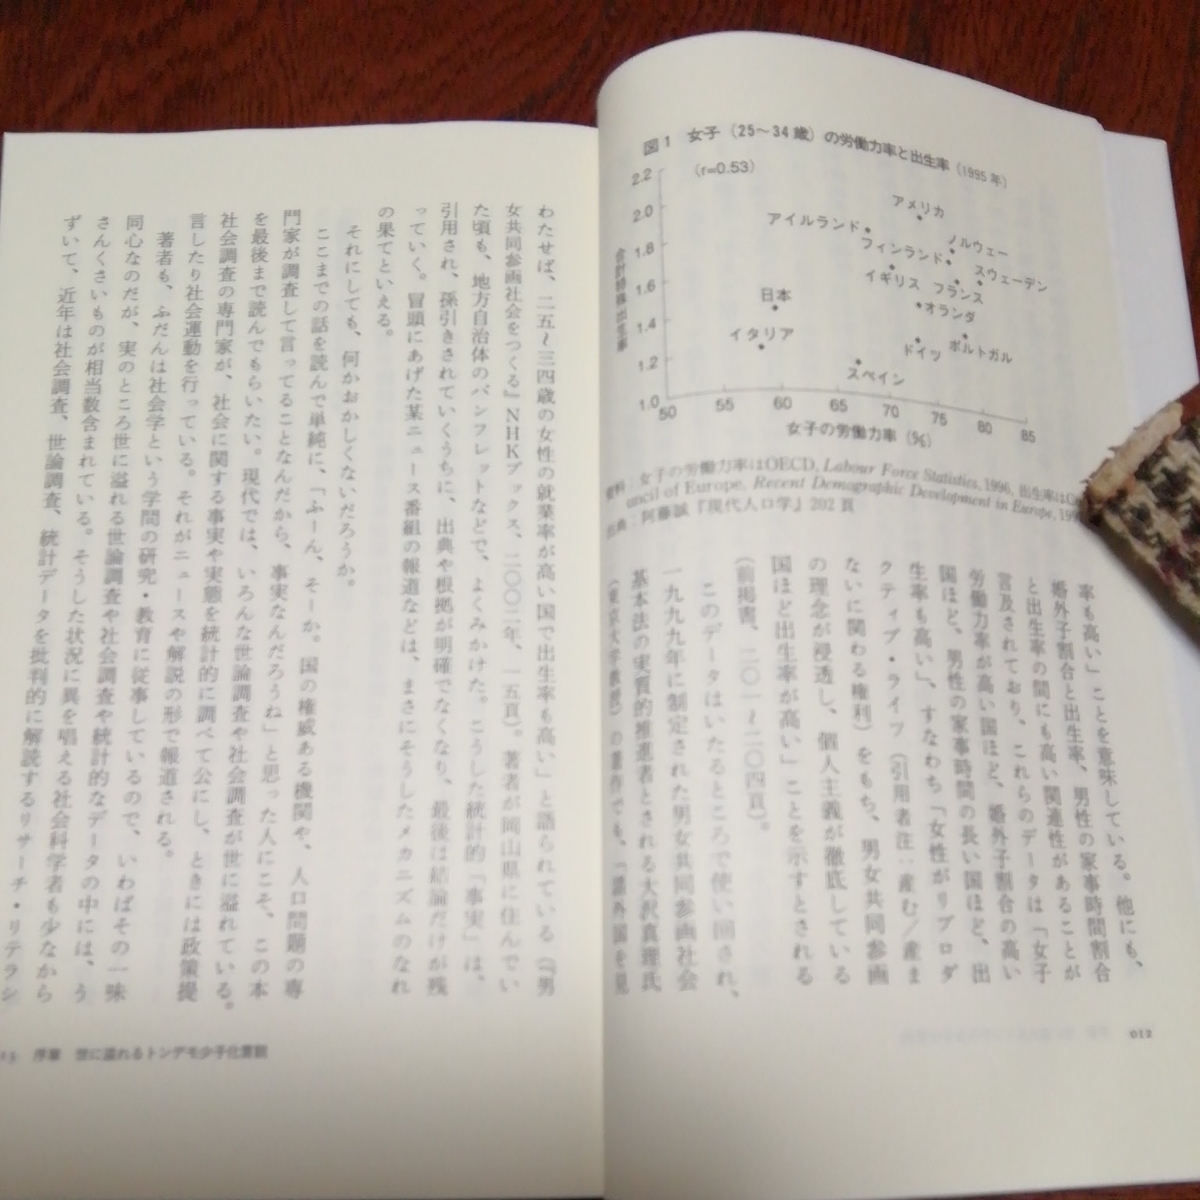 図1 女子（25～34歳）の労働力率と出生率（1995年）
（r=0.53）
合計特殊出生率
2.2
2.0
1.8
1.6
1.4
1.2
1.0
アメリカ
アイルランド
ノルウェー
フィンランド
スウェーデン
イギリス
フランス
オランダ
日本
イタリア
ポルトガル
ドイツ
スペイン
50
55
60
65
70
75
80
85
女子の労働力率（%）
資料：女子の労働力率はOECD, Labour Force Statistics, 1996, 出生率は
uncil of Europe, Recent Demographic Development in Europe,
出典：阿藤誠『現代人口学』202頁
率も高い」ことを意味している。他にも、
婚外子割合と出生率、男性の家事時間割合
と出生率の間にも高い関連性があることが
言及されており、これらのデータは「女子
労働力率が高い国ほど、婚外子割合の高い
国ほど、男性の家事時間の長い国ほど、出
生率も高い」、すなわち「女性がリプロダ
クティブ・ライツ（引用者注：産む／産ま
ないに関わる権利）をもち、男女共同参画
の理念が浸透し、個人主義が徹底している
国ほど出生率が高い」ことを示すとされる
（前掲書、二〇一～二〇四頁）。
このデータはいたるところで使い回され、
一九九九年に制定された男女共同参画社会
基本法の実質的推進者とされる大沢真理氏
（東京大学教授）の著作でも、「諸外国を見
012
わたせば、二五～三四歳の女性の就業率が高い国で出生率も高い」と語られている（『男
女共同参画社会をつくる』NHKブックス、二〇〇二年、一五頁）。著者が岡山県に住んでい
た頃も、地方自治体のパンフレットなどで、よくみかけた。こうした統計的「事実」は、
引用され、孫引きされていくうちに、出典や根拠が明確でなくなり、最後は結論だけが残
っていく。冒頭にあげた某ニュース番組の報道などは、まさにそうしたメカニズムのなれ
の果てといえる。
それにしても、何かおかしくないだろうか。
ここまでの話を読んで単純に、「ふーん、そーか。国の権威ある機関や、人口問題の専
門家が調査して言ってることなんだから、事実なんだろうね」と思った人にこそ、この本
を最後まで読んでもらいたい。現代では、いろんな世論調査や社会調査が世に溢れている。
社会調査の専門家が、社会に関する事実や実態を統計的に調べて公にし、ときには政策提
言したり社会運動を行っている。それがニュースや解説の形で報道される。
著者も、ふだんは社会学という学問の研究・教育に従事しているので、いわばその一味
同心なのだが、実のところ世に溢れる世論調査や社会調査や統計的なデータの中には、う
さんくさいものが相当数含まれている。そうした状況に異を唱える社会科学者も少なから
ずいて、近年は社会調査、世論調査、統計データを批判的に解読するリサーチ・リテラシ
13 序章 世に溢れるトンデモ少子化言説